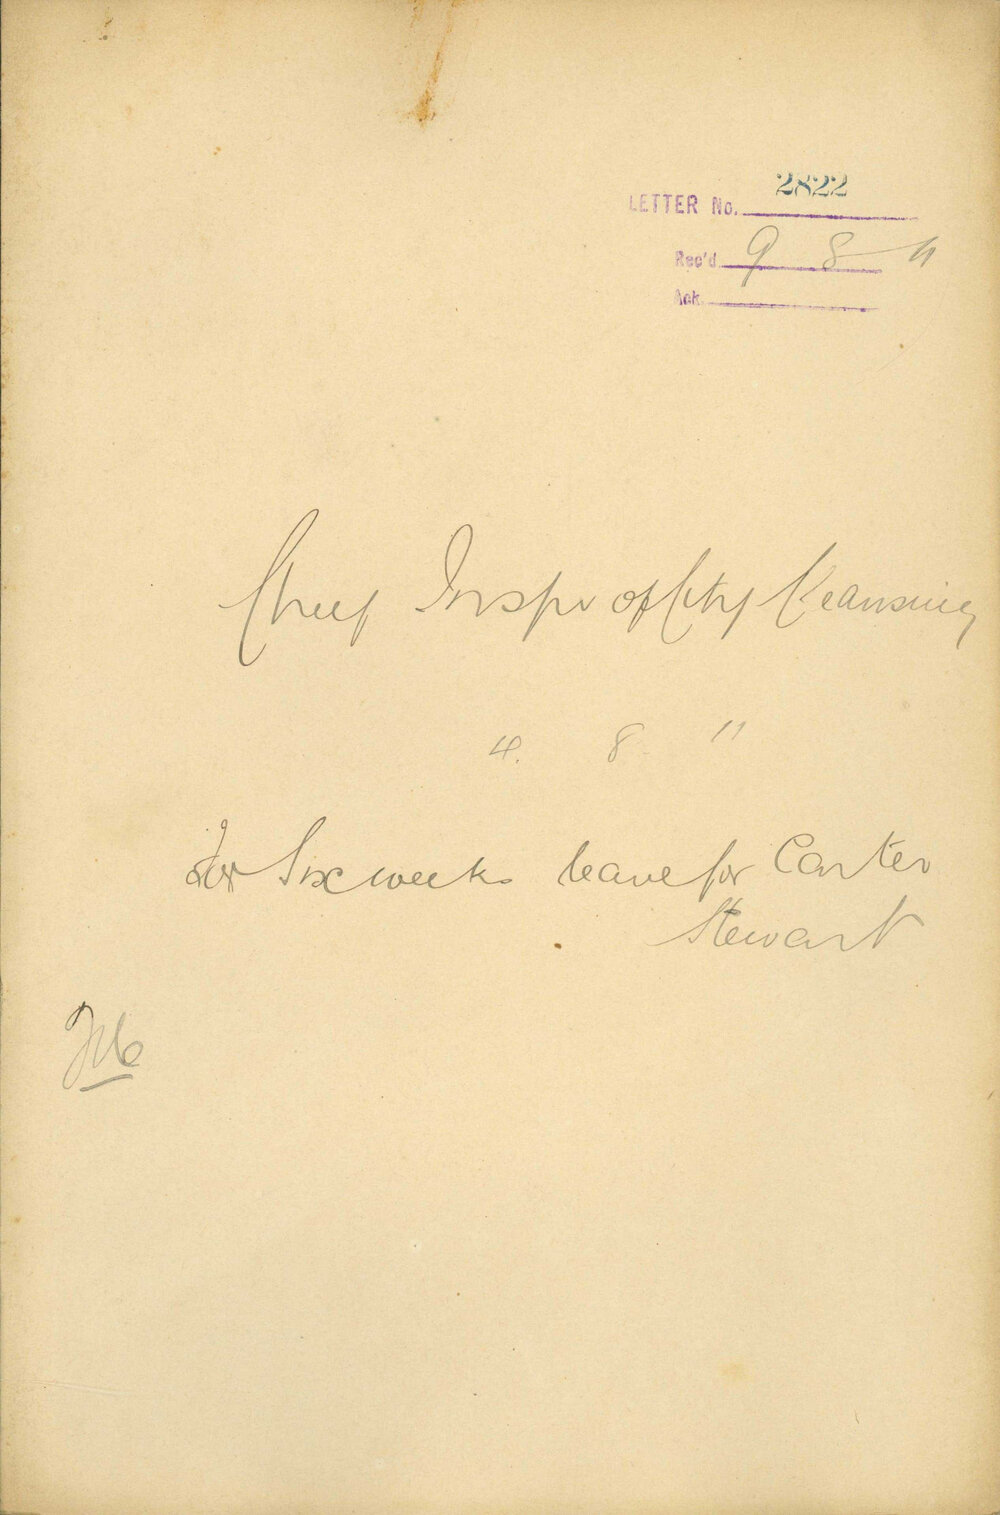 LETTER No. 2822
Rec'd 9 8 11
Ack.
Chief Inspr of City Cleansing
4. 8 11
for Six weeks leave for Carter
Stewart